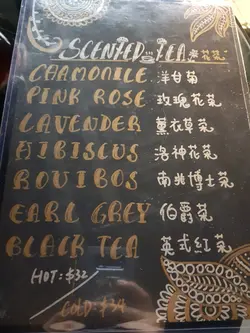 SCENTED TEA 花茶
CHAMOMILE 洋甘菊
PINK ROSE 玫瑰花茶
LAVENDER 薰衣草茶
HIBISCUS 洛神花茶
ROUIBOS 南非博士茶
EARL GREY 伯爵茶
BLACK TEA 英式紅茶
HOT: $32
COLD: $34